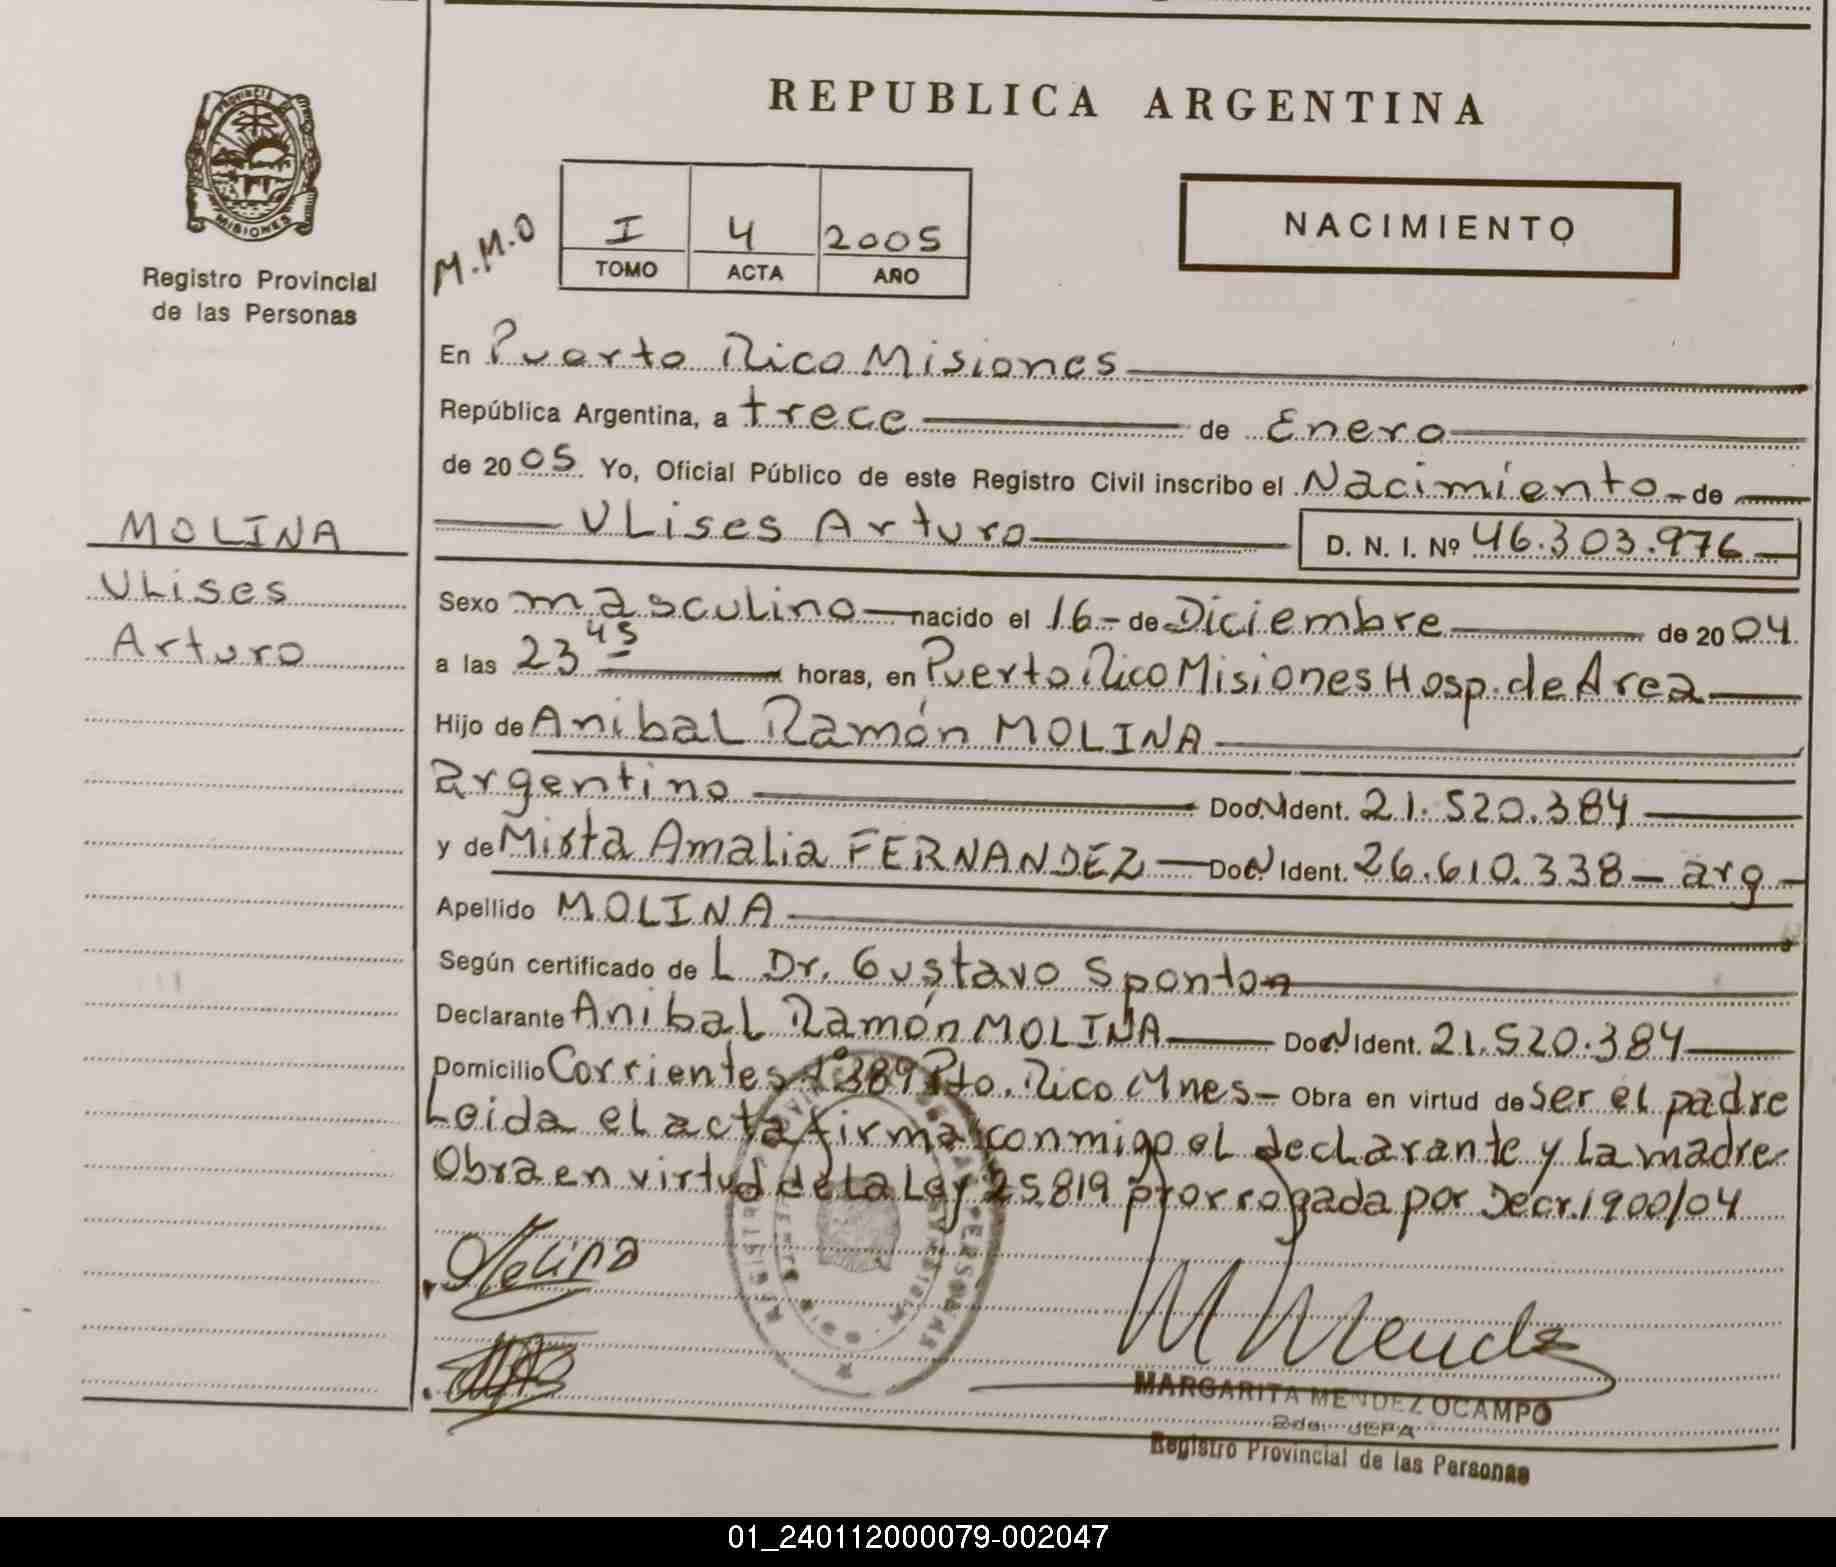 REPUBLICA ARGENTINA
PROVINCIA DE
MISIONES
Registro Provincial
de las Personas
M.M.O
I 4 2005
TOMO ACTA AÑO
NACIMIENTO
En Puerto Rico Misiones
República Argentina, a trece de Enero
de 2005 Yo, Oficial Público de este Registro Civil inscribo el Nacimiento de
ULises Arturo D. N. I. Nº 46.303.976
MOLINA
ULises
Arturo
Sexo masculino nacido el 16 de Diciembre de 2004
a las 23 45 horas, en Puerto Rico Misiones Hosp. de Area
Hijo de Anibal Ramón MOLINA
argentino Doc. N Ident. 21.520.384
y de Mirta Amalia FERNANDEZ Doc. N Ident. 26.610.338 - arg
Apellido MOLINA
Según certificado de L Dr. Gustavo Sponton
Declarante Anibal Ramón MOLINA Doc. N Ident. 21.520.384
Domicilio Corrientes 389 Pto. Rico Mnes Obra en virtud de ser el padre
Leida el acta firma conmigo el declarante y la madre
Obra en virtud de la Ley 25.819 prorrogada por Decr. 1900/04
Molina
M Mendez
MARGARITA MENDEZ OCAMPO
JEFA
Registro Provincial de las Personas
01_240112000079-002047